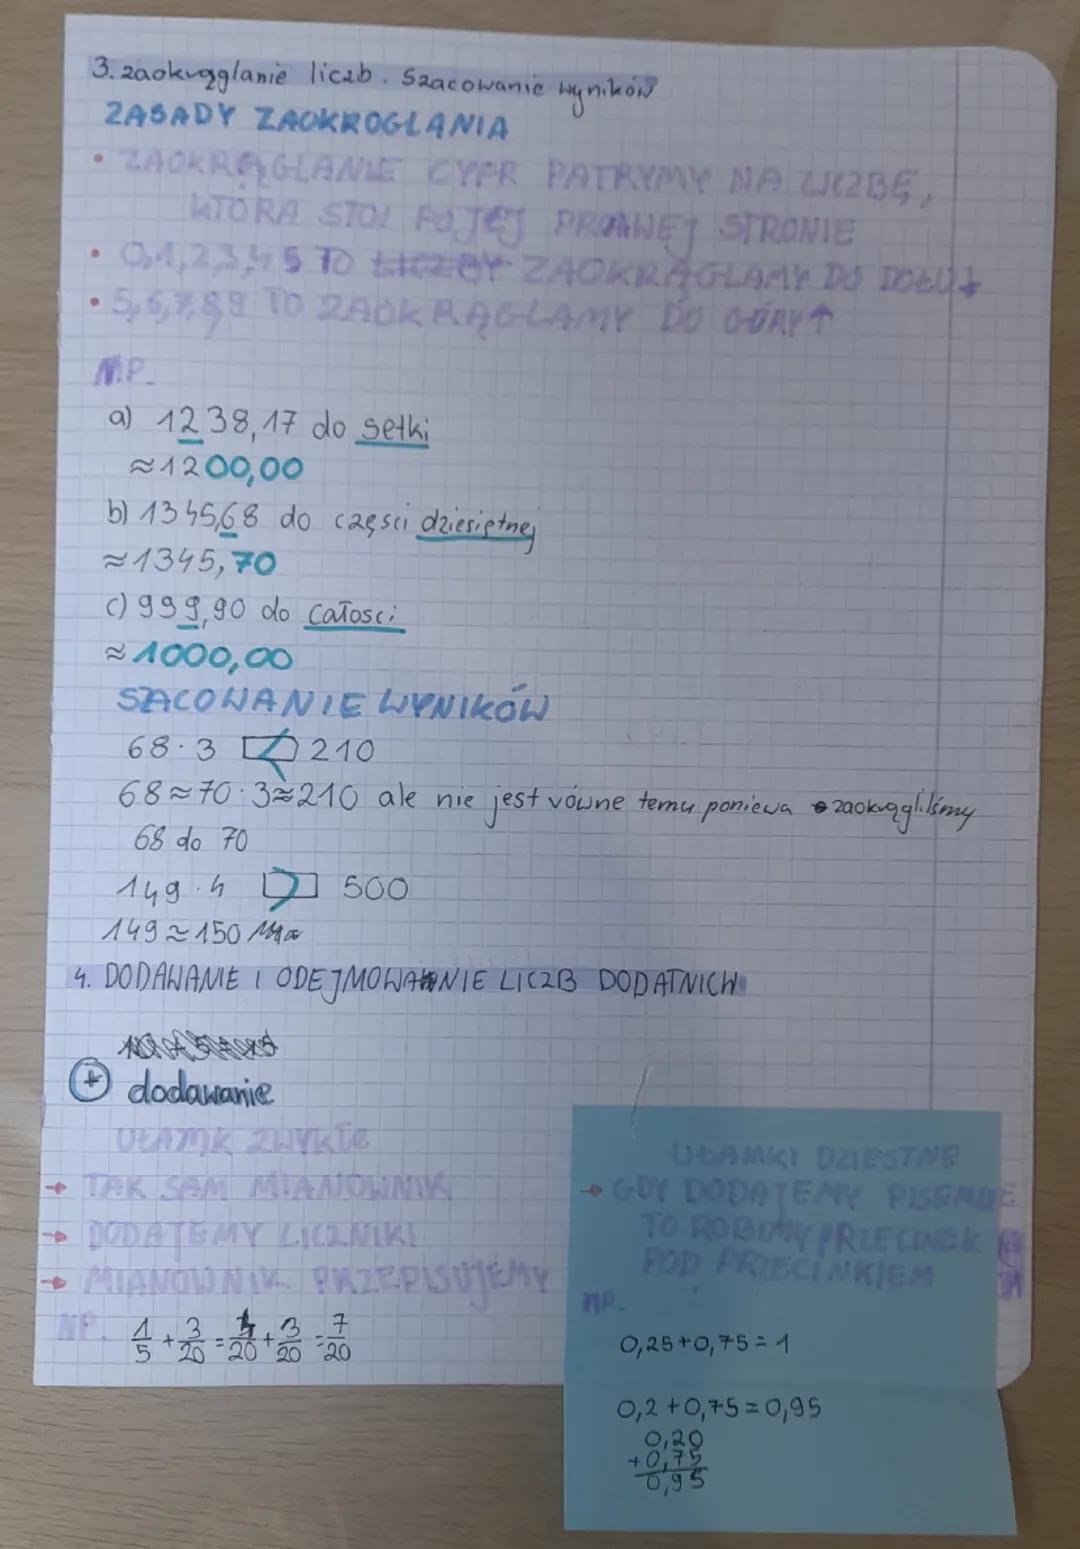 3. zaokrąglanie liczb. Szacowanie wyników
ZASADY ZAOKROGLANIA
• ZAOKRĄGLANIE CYFR PATRYMY NA LICZBĘ,
KTÓRA STOI PO JEJ PRAWEJ STRONIE
• 0,1,2,3,4 TO ZAOKRĄGLAMY DO DOŁU↓
• 5,6,7,8,9 TO ZAOKRĄGLAMY DO GÓRY↑
NP.
a) 1238,17 do setki
≈1200,00
b) 1345,68 do części dziesiętnej
≈1345,70
c) 999,90 do całości
≈1000,00
SZACOWANIE WYNIKÓW
68·3 < 210
68≈70·3≈210 ale nie jest równe temu poniewa zaokrągliliśmy
68 do 70
149·4 > 500
149≈150
4. DODAWANIE I ODEJMOWANIE LICZB DODATNICH
+ dodawanie
UŁAMK ZWYKŁE
→ TAK SAM MIANOWNIK
→ DODAJEMY LICZNIKI
→ MIANOWNIK PRZEPISUJEMY
NP. 1/5 + 3/20 = 4/20 + 3/20 = 7/20
UŁAMKI DZIESTNE
→ GDY DODAJEMY PISEMNIE
TO ROBIMY PRZECINEK
POD PRZECINKIEM
NP.
0,25+0,75=1
0,2+0,75=0,95
0,20
+0,75
0,95